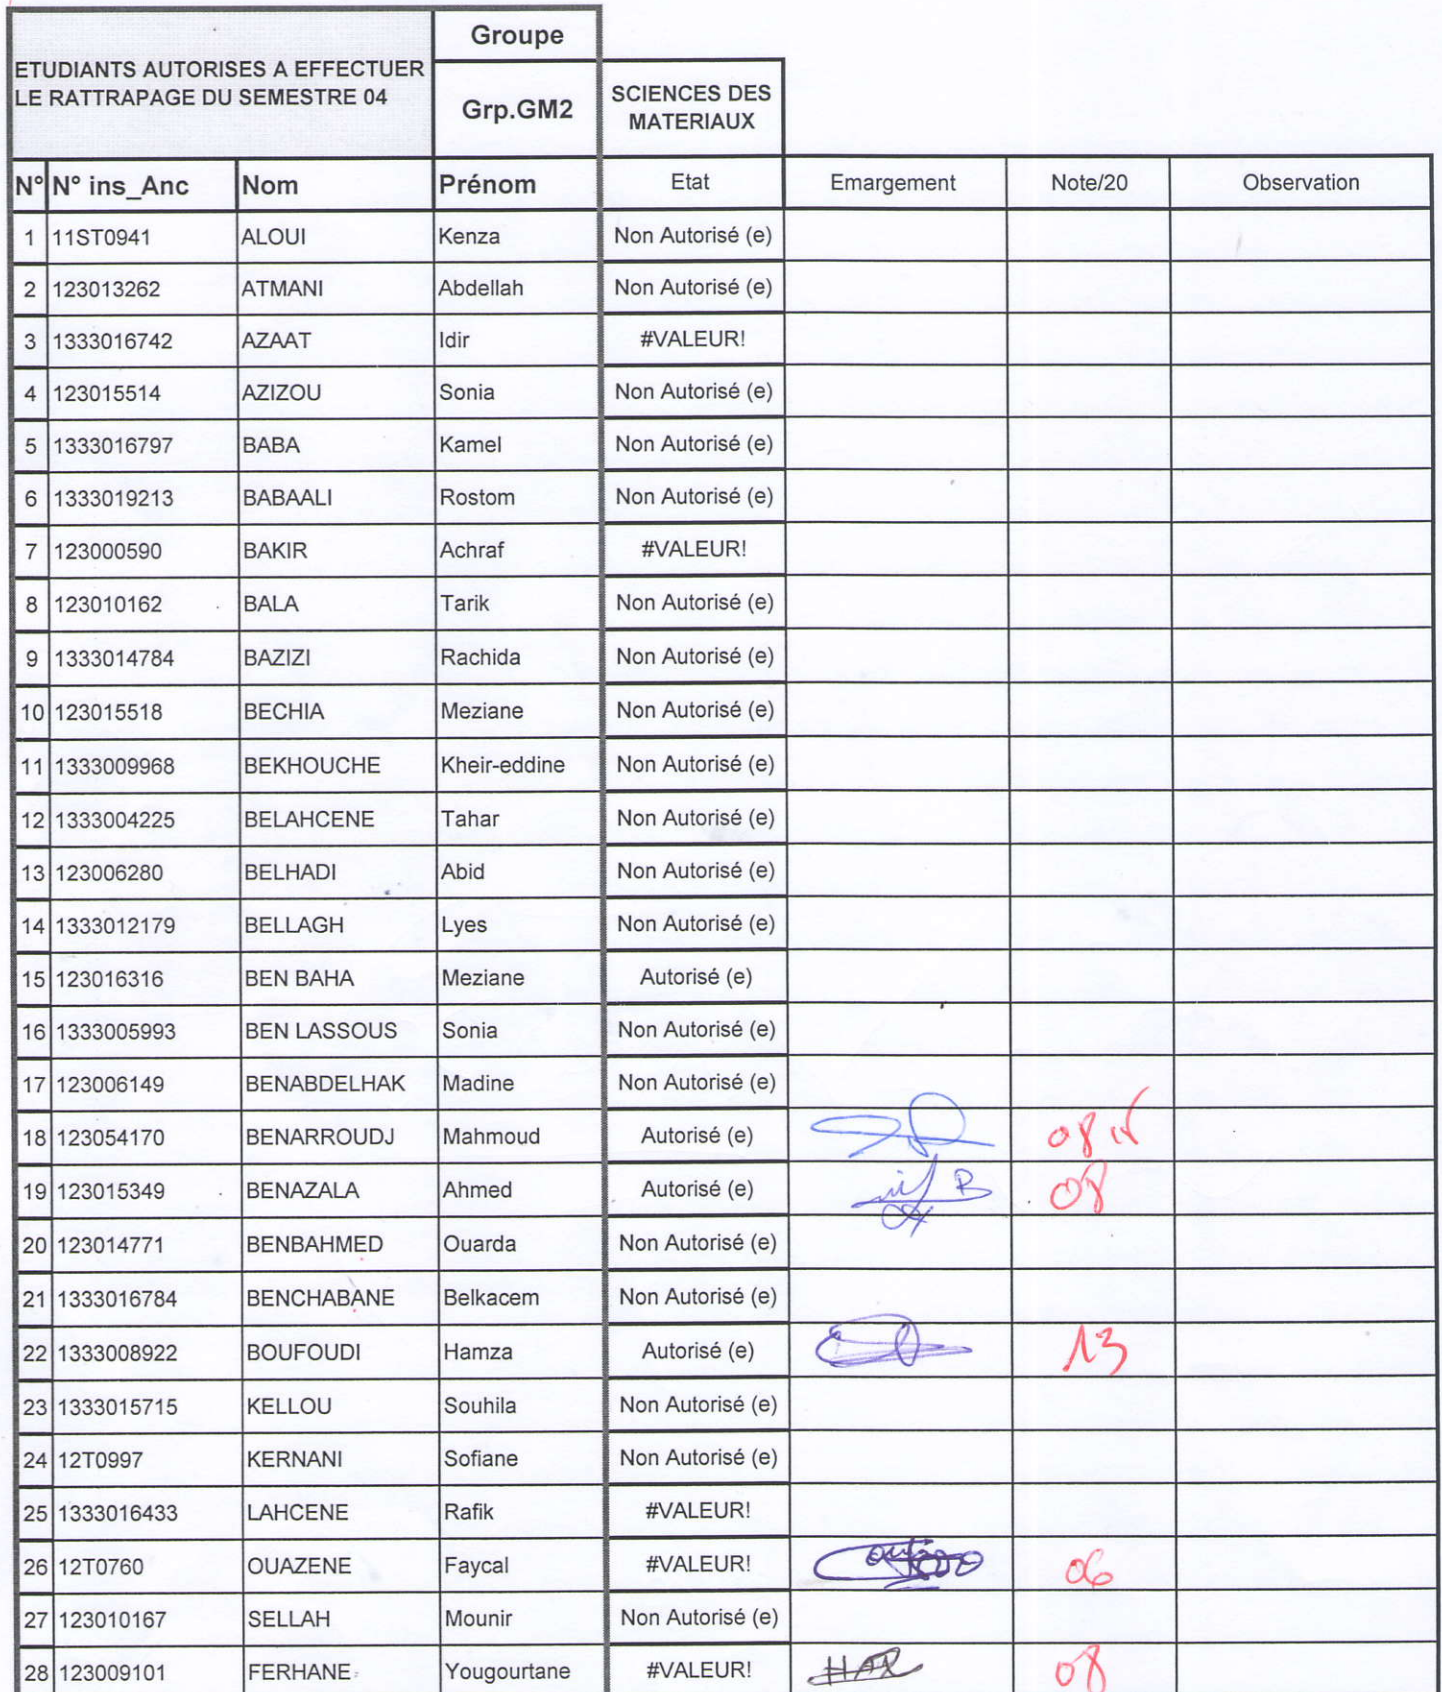 ETUDIANTS AUTORISES A EFFECTUER
LE RATTRAPAGE DU SEMESTRE 04
Groupe
Grp.GM2
SCIENCES DES
MATERIAUX
N° N° ins_Anc Nom Prénom Etat Emargement Note/20 Observation
1 11ST0941 ALOUI Kenza Non Autorisé (e)
2 123013262 ATMANI Abdellah Non Autorisé (e)
3 1333016742 AZAAT Idir #VALEUR!
4 123015514 AZIZOU Sonia Non Autorisé (e)
5 1333016797 BABA Kamel Non Autorisé (e)
6 1333019213 BABAALI Rostom Non Autorisé (e)
7 123000590 BAKIR Achraf #VALEUR!
8 123010162 BALA Tarik Non Autorisé (e)
9 1333014784 BAZIZI Rachida Non Autorisé (e)
10 123015518 BECHIA Meziane Non Autorisé (e)
11 1333009968 BEKHOUCHE Kheir-eddine Non Autorisé (e)
12 1333004225 BELAHCENE Tahar Non Autorisé (e)
13 123006280 BELHADI Abid Non Autorisé (e)
14 1333012179 BELLAGH Lyes Non Autorisé (e)
15 123016316 BEN BAHA Meziane Autorisé (e)
16 1333005993 BEN LASSOUS Sonia Non Autorisé (e)
17 123006149 BENABDELHAK Madine Non Autorisé (e)
18 123054170 BENARROUDJ Mahmoud Autorisé (e) 08
19 123015349 BENAZALA Ahmed Autorisé (e) 08
20 123014771 BENBAHMED Ouarda Non Autorisé (e)
21 1333016784 BENCHABANE Belkacem Non Autorisé (e)
22 1333008922 BOUFOUDI Hamza Autorisé (e) 13
23 1333015715 KELLOU Souhila Non Autorisé (e)
24 12T0997 KERNANI Sofiane Non Autorisé (e)
25 1333016433 LAHCENE Rafik #VALEUR!
26 12T0760 OUAZENE Faycal #VALEUR! 06
27 123010167 SELLAH Mounir Non Autorisé (e)
28 123009101 FERHANE Yougourtane #VALEUR! 08